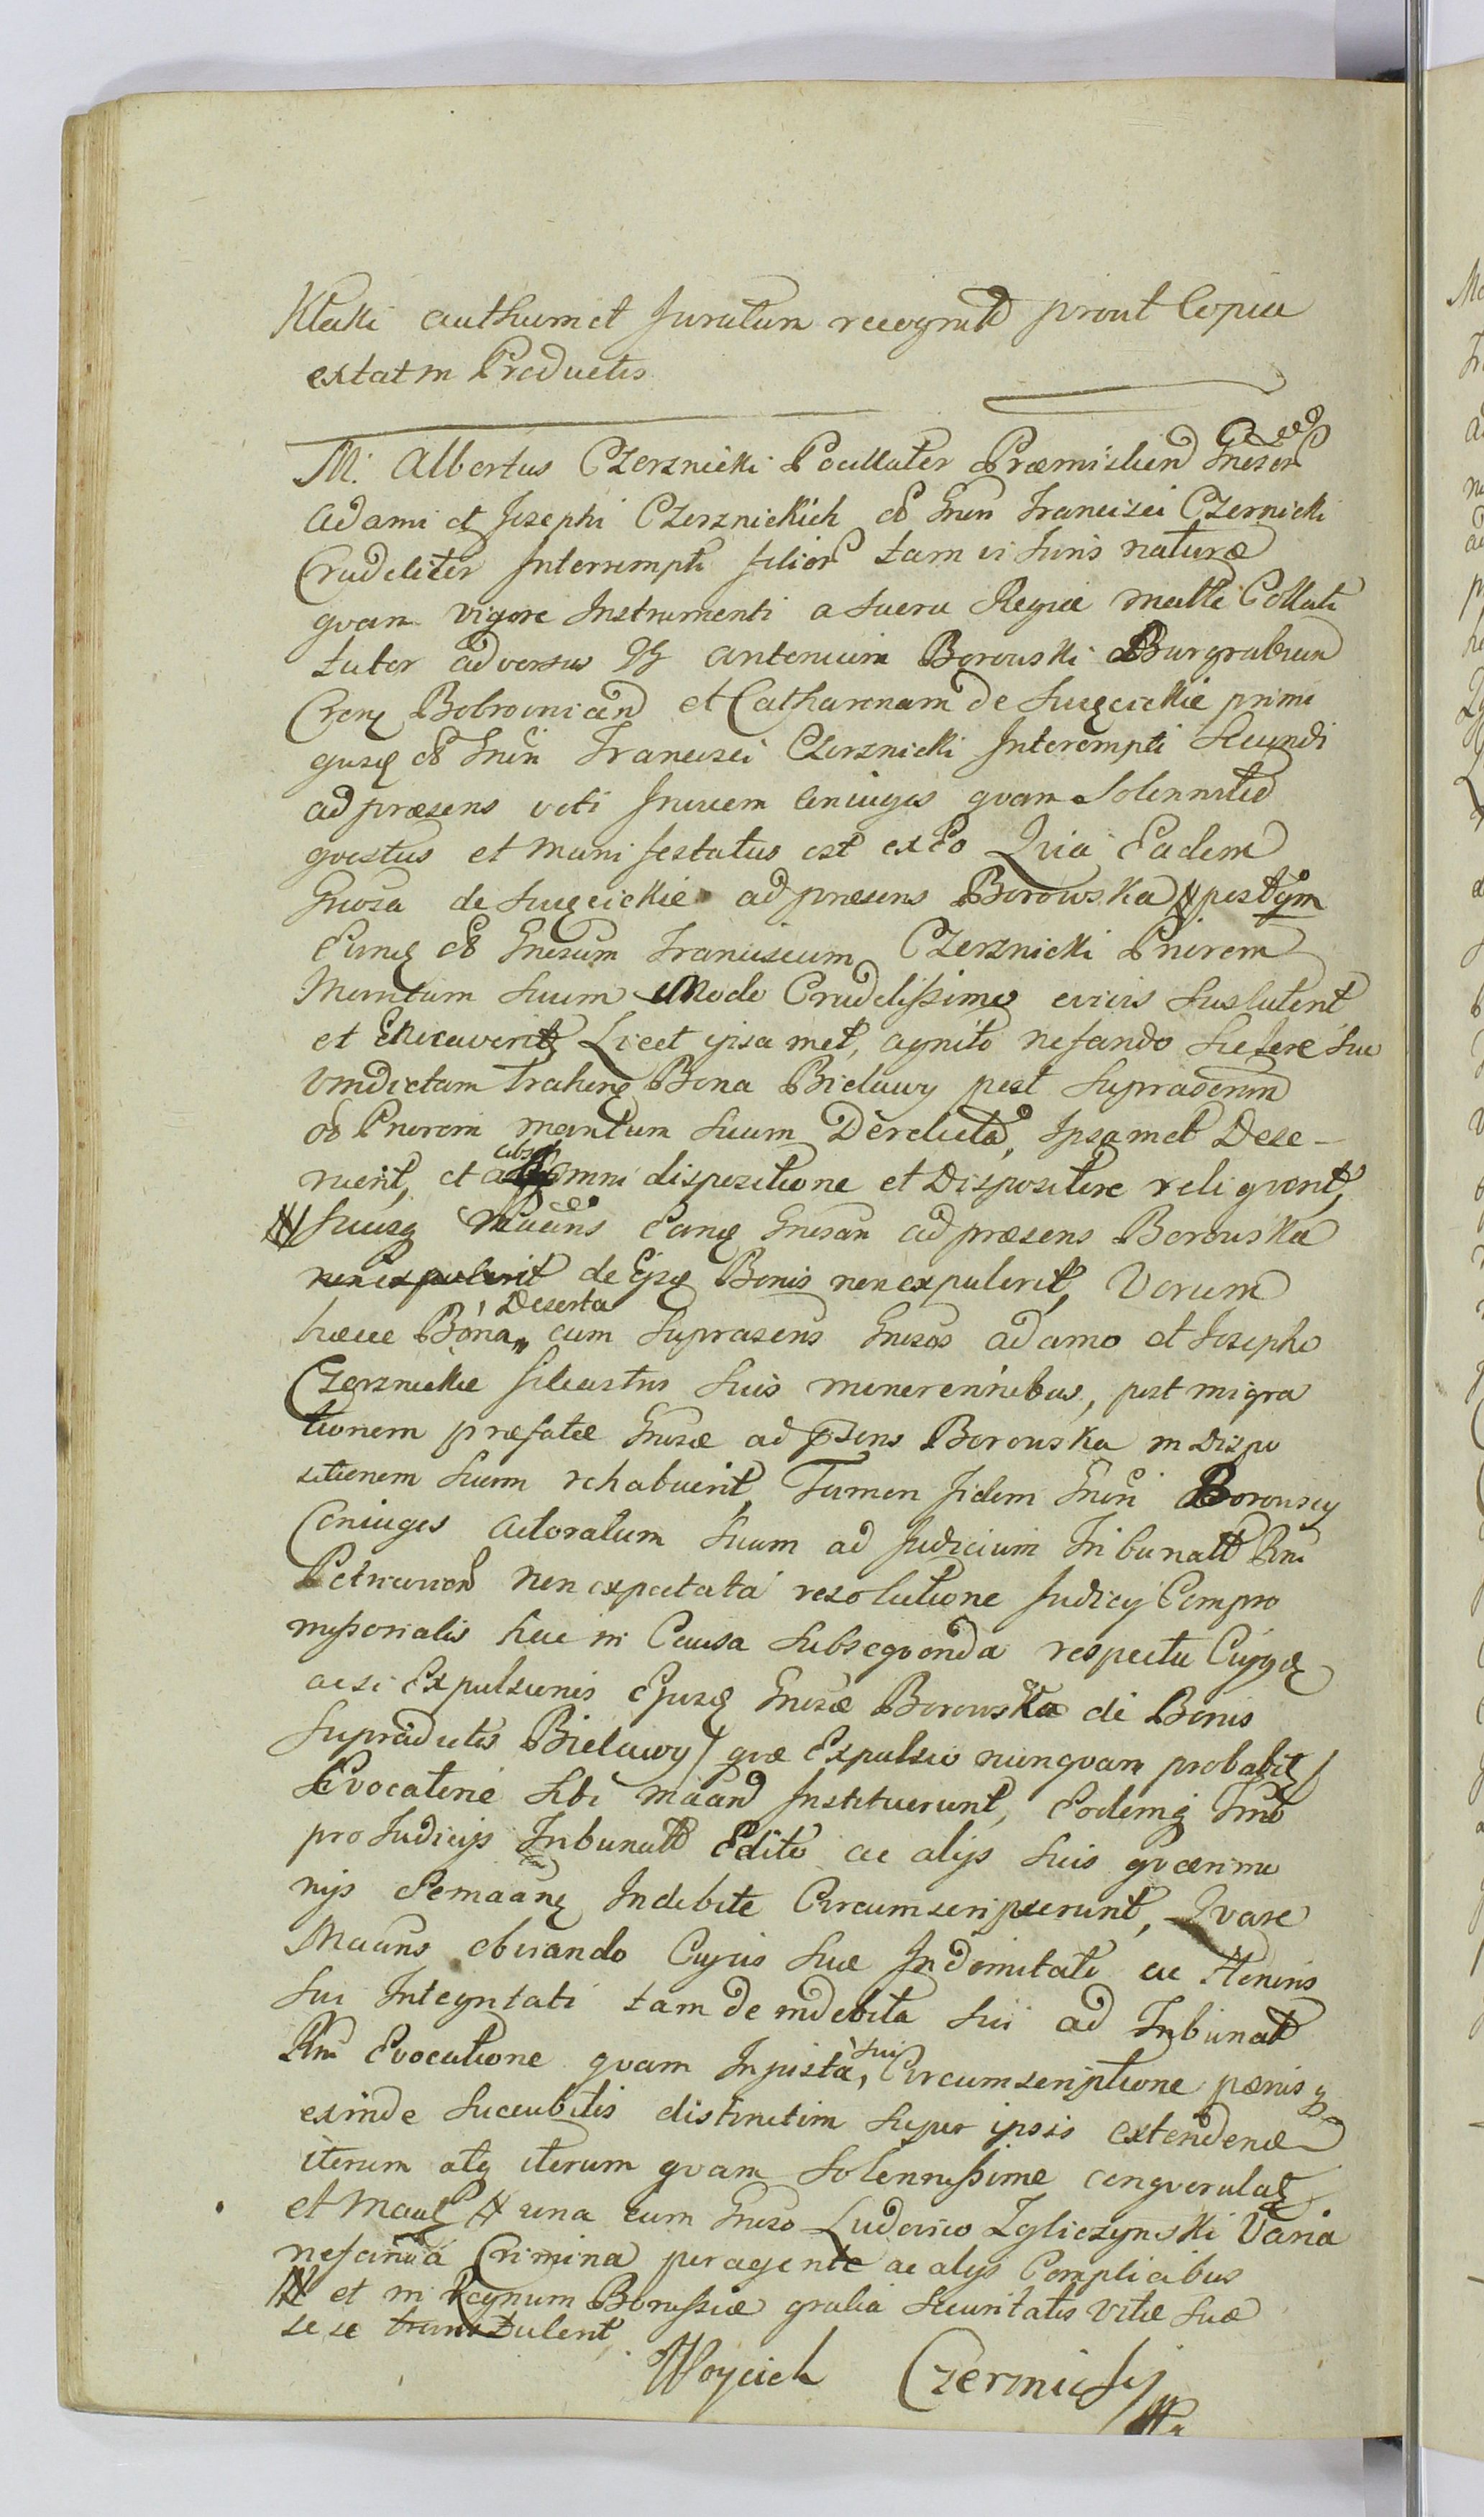 Klaki authumet Juratum recognitt prout Copia
extat in Productis
M. Albertus Czersnicki Pocillator Præmislien Gnesor
Adami et Josephi Czersnickich ol Gnen Francisci Czernicki
Crudeliter Interempti filior tam vi Juris naturæ
qvam vigore Instrumenti a Sacra Regiæ Matte Collati
tutor adversus G Antonium Borowski Burgrabium
Cren Bobrovnicen et Catharinam de Sugcickie primi
gusq ol Gnen Francisci Czersnicki Interempti Secundi
ad præsens voti Invicem Coniuges qvam Solennited
qvestus et Manifestatus est ex Eo Qvia Eadem
Gnosa de Sugcickie ad præsens Borowska postqm
Eunq ol Gnesum Franciscum Czersnicki Priorem
Maritum Suum Modo Crudelissimo e vivis Sustulerit
et Enicaverit, Licet ipsa met, agnito nefando Scelere Suo
Vindictam Trahenq Bona Bielawy post Supradictum
ol Priorem maritum Suum Derelicta, Ipsamet Dese-
ruerit, et absq omni dispositione et Dispositore reliqverit,
Suusq Maans Eanq Gnesan ad præsens Borowska
non expulerit de Ejsq Bonis non expulerit, Verum
hæcce Bona Deserta cum Suprasens Gnesos Adamo et Josepho
Czersnickie filiastris Suis minorennibus, post migra
tionem præfatæ Gnosæ ad psens Borowska in Dispo
sitionem Suam rehabuerit, Tamen Iidem Gnen Borowscy
Coniuges Actoratum Suum ad Judicium Tribunatt Rni
Petricovien Non expectatá resolutione Judicy Compro
missorialis hac in Causa Subseqvenda respectu Cujq
acsi Expulsionis Ejusq Gnosæ Borowska de Bonis
Supradictis Bielawy / qvæ Expulsio nunqvam probabit /
Evocatorie Sibi Maand Instituerunt, Eodemq Tmo
pro Judicijs Tribunatt Edito ac alijs Suis qværimo
nijs Semaanq Indebite Circumscripserunt, Qvare
Maans obviando Cujus Suæ Indemnitati ac Honoris
Sui Integritati tam de indebita Sui ad Tribunat
Rni Evocatione qvam Injusta, Sui Circumscriptione pænisq
exinde Succubitis distinctim Super ipsis extendend
iterum atq iterum qvam Solennissime conqverulat
et Maat una cum Gneso Ludovico Zgliczynski Varia
nefanda Crimina peragente ac alijs Complicibus
et in Regnum Borussiæ gratia Securitatis Vitæ Suæ
sese transtulerit
Woyciech Czerznicky